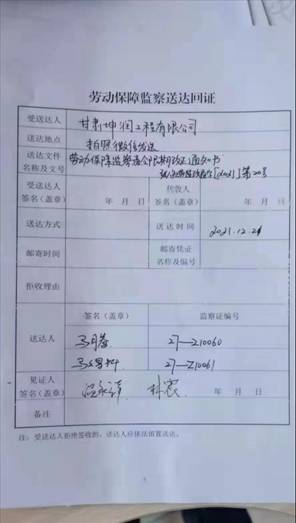 劳动保障监察送达回证
受送达人 甘肃坤润工程有限公司
送达地点 拍照微信发送
送达文件 劳动保障监察责令限期改正通知书
名称及文号 [2021]第20号
受送达人 代收人
签名(盖章) 年 月 日 签名(盖章) 年 月 日
送达方式 送达时间 2021.12.21
邮寄时间 邮寄凭证
名称及编号
拒收理由
年 月 日
签名(盖章) 监察证编号
送达人 27—Z10060
27—Z10061
见证人
签名(盖章) 年 月 日
备注
注:受送达人拒绝签收的,送达人应依法留置送达。